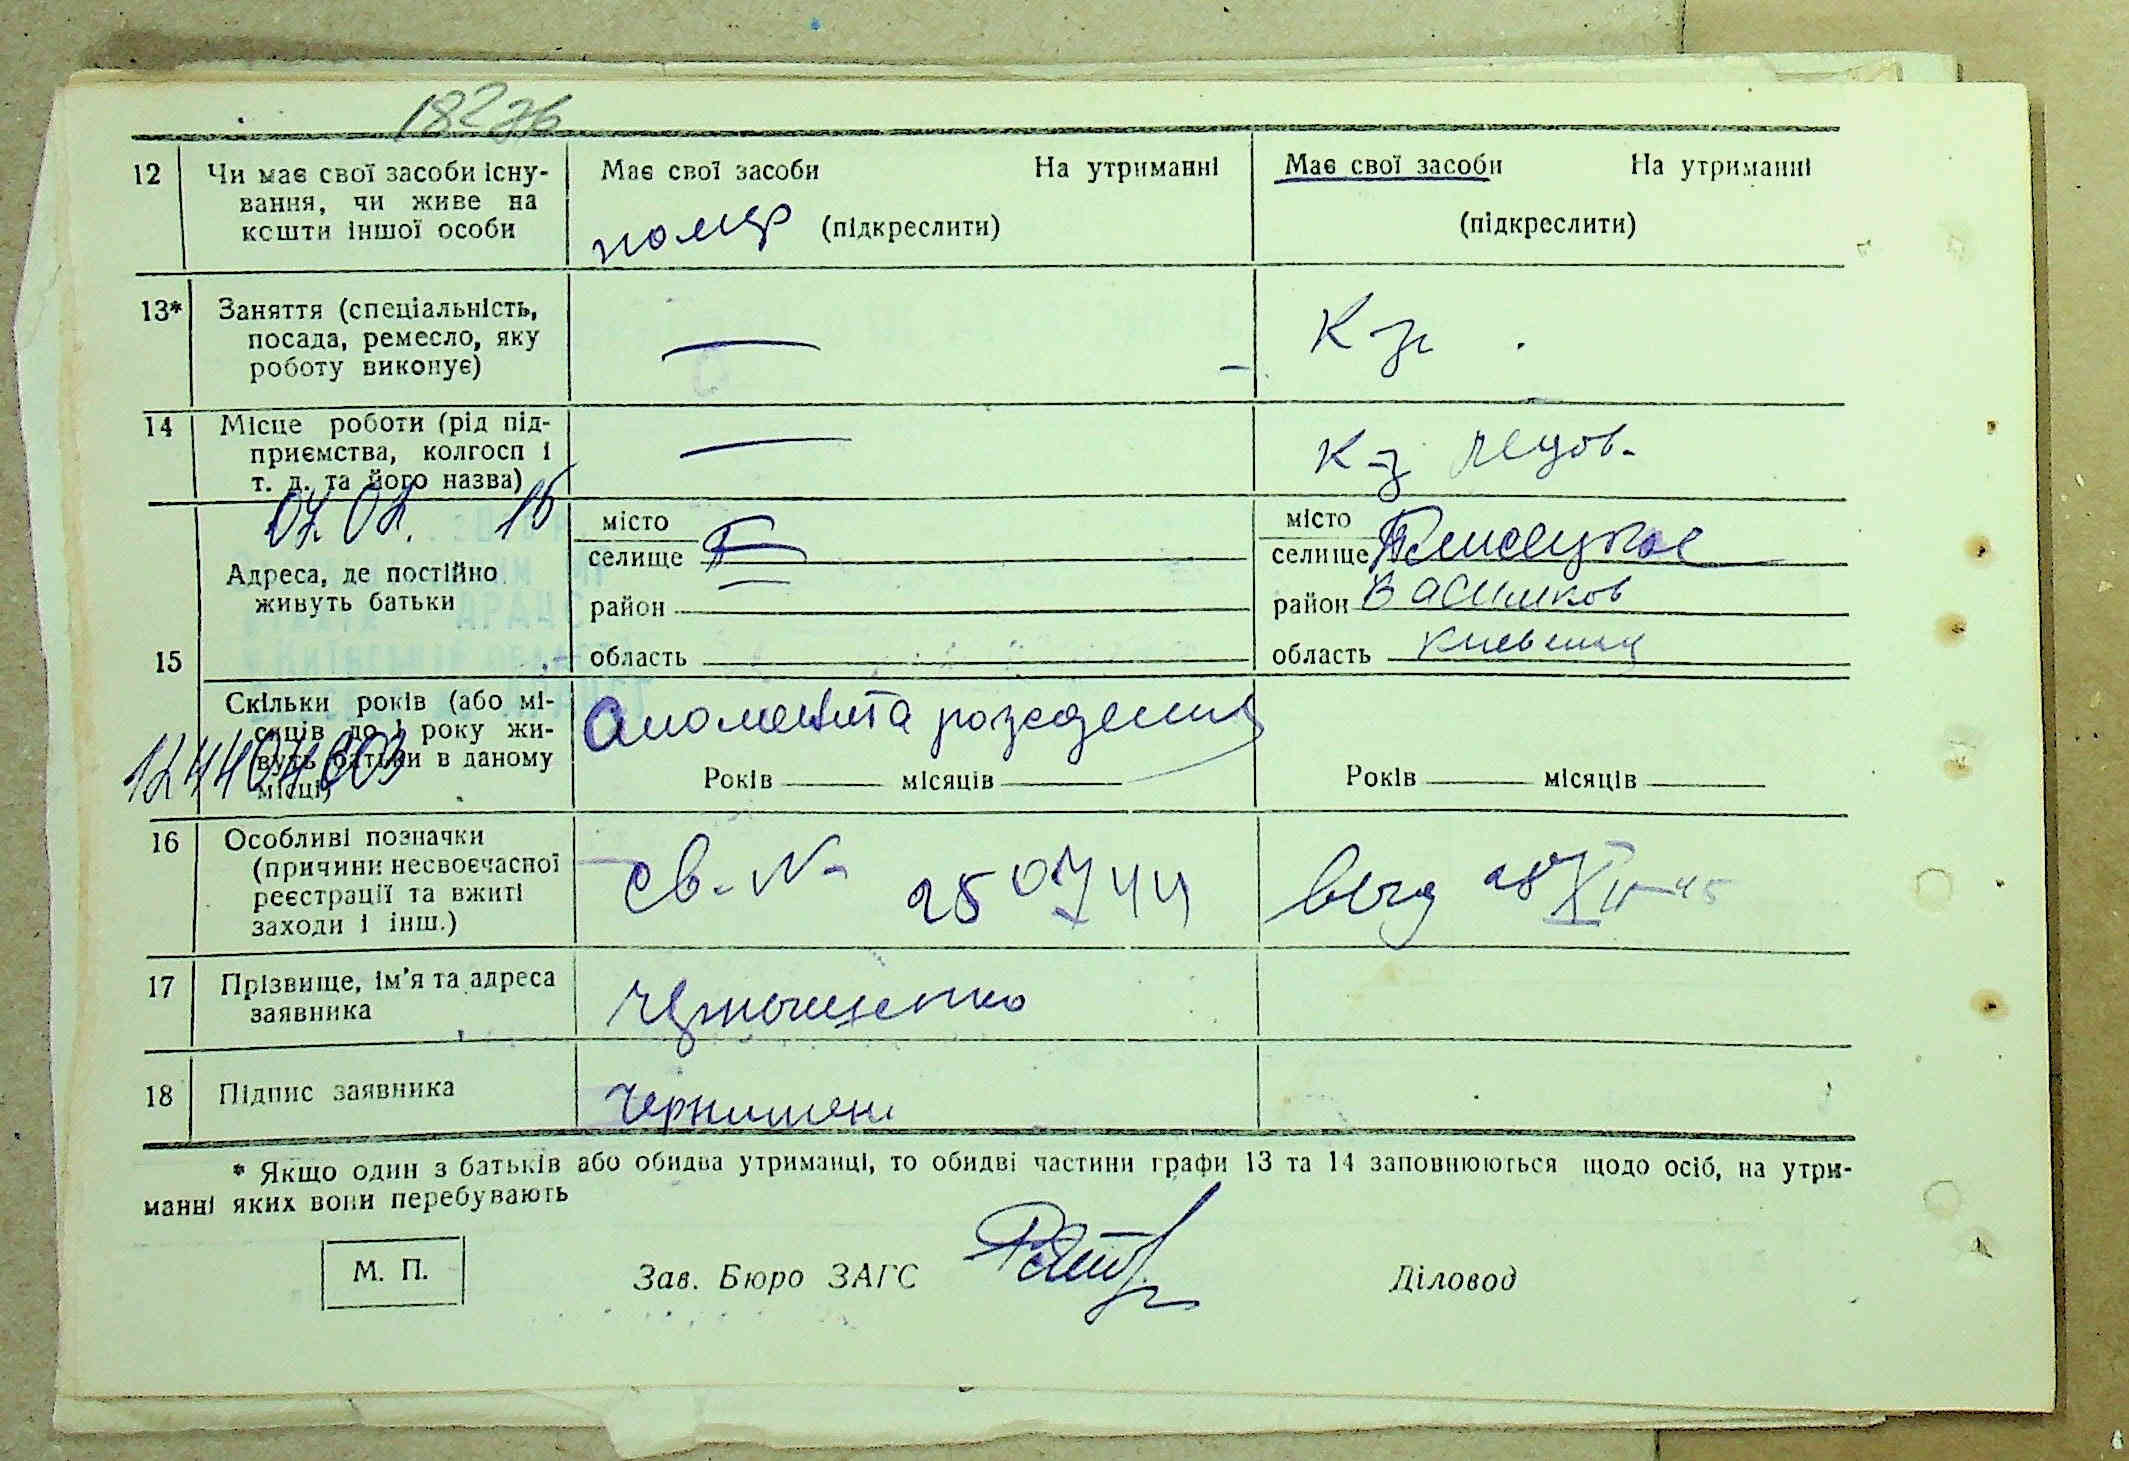 182 зв
12 Чи має свої засоби існу- Має свої засоби На утриманні Має свої засоби На утриманні
вання, чи живе на
кошти іншої особи помер (підкреслити) (підкреслити)
13* Заняття (спеціальність,
посада, ремесло, яку — К-к
роботу виконує)
14 Місце роботи (рід під-
приємства, колгосп і — К-з
т. д. та його назва)
07.02. 15
місто місто
селище селище
Адреса, де постійно
живуть батьки район район Васильков
15 область область Киевская
Скільки років (або мі-
сяців до 1 року жи- Смомента рождения
вуть батьки в даному
місці) Років місяців Років місяців
1244404003
16 Особливі позначки
(причини несвоєчасної Св-№ 250744 выд 28 XII-45
реєстрації та вжиті
заходи і інш.)
17 Прізвище, ім'я та адреса
заявника
18 Підпис заявника
* Якщо один з батьків або обидва утриманці, то обидві частини графи 13 та 14 заповнюються щодо осіб, на утри-
манні яких вони перебувають
М. П. Зав. Бюро ЗАГС Діловод